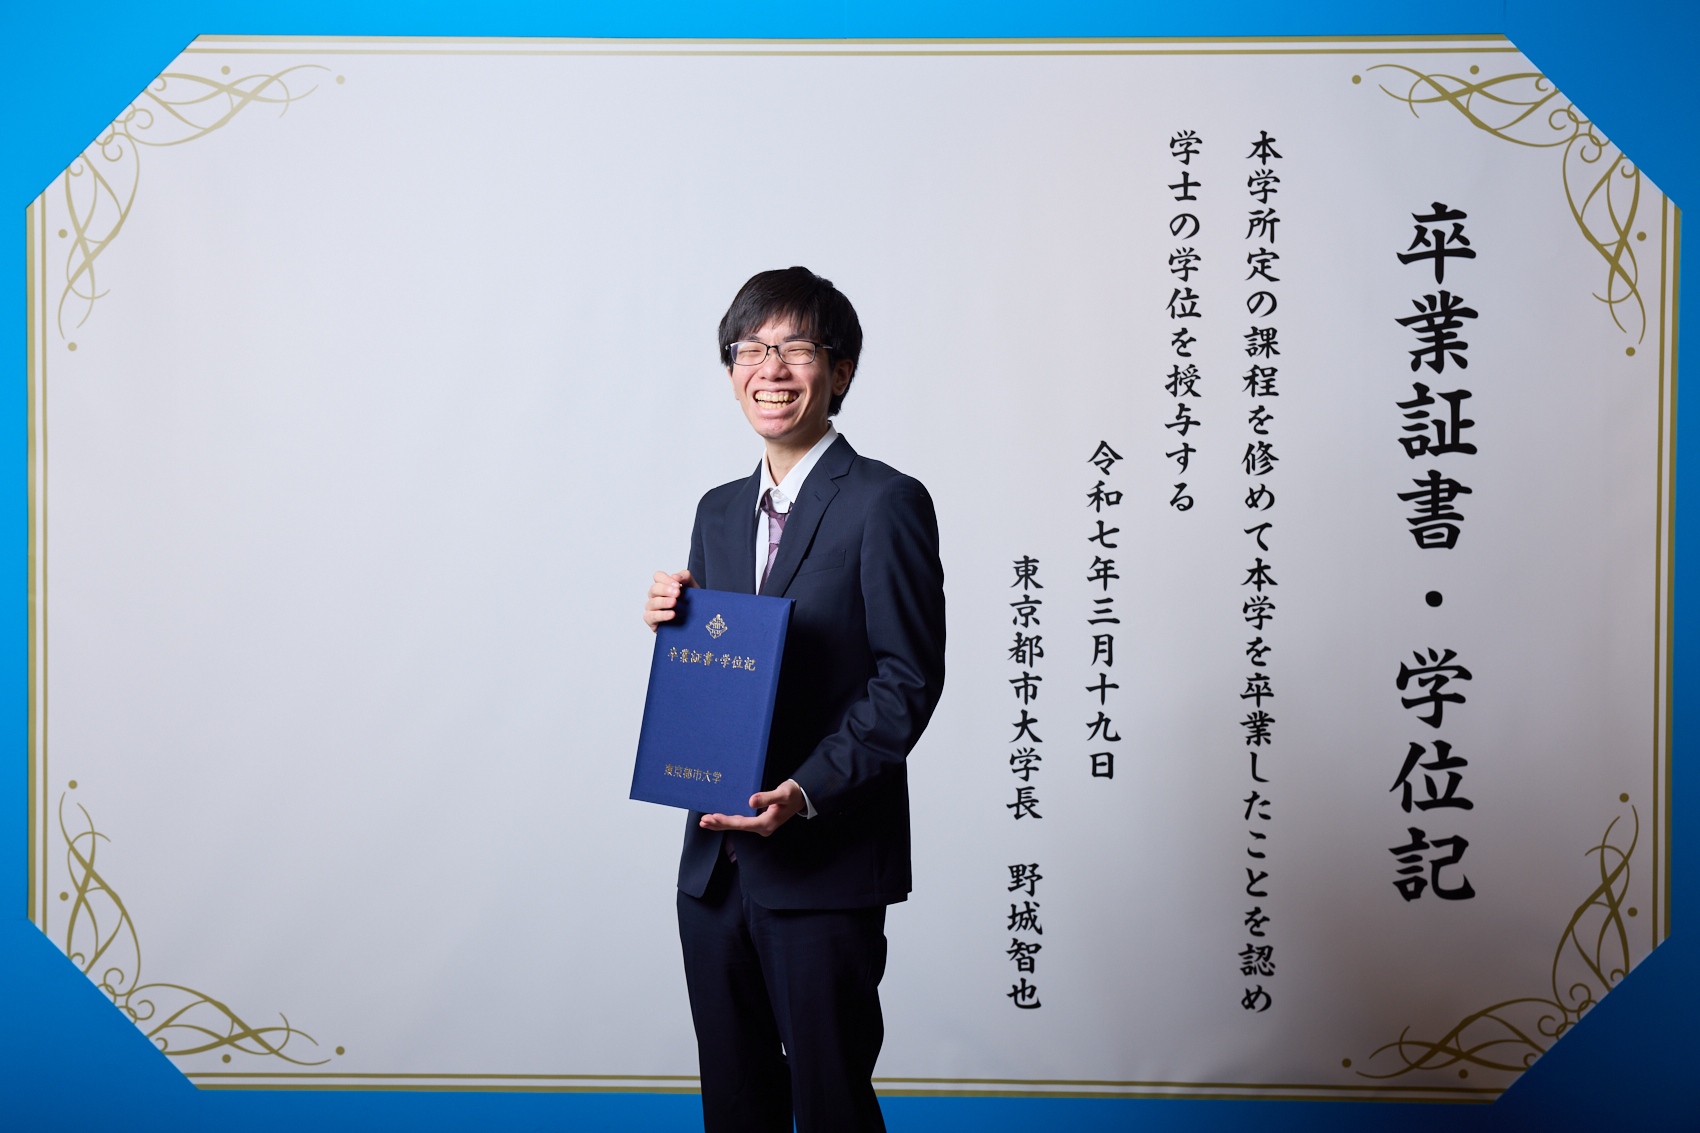 卒業証書・学位記
本学所定の課程を修めて本学を卒業したことを認め
学士の学位を授与する
令和七年三月十九日
東京都市大学長　野城智也
卒業証書・学位記
東京都市大学